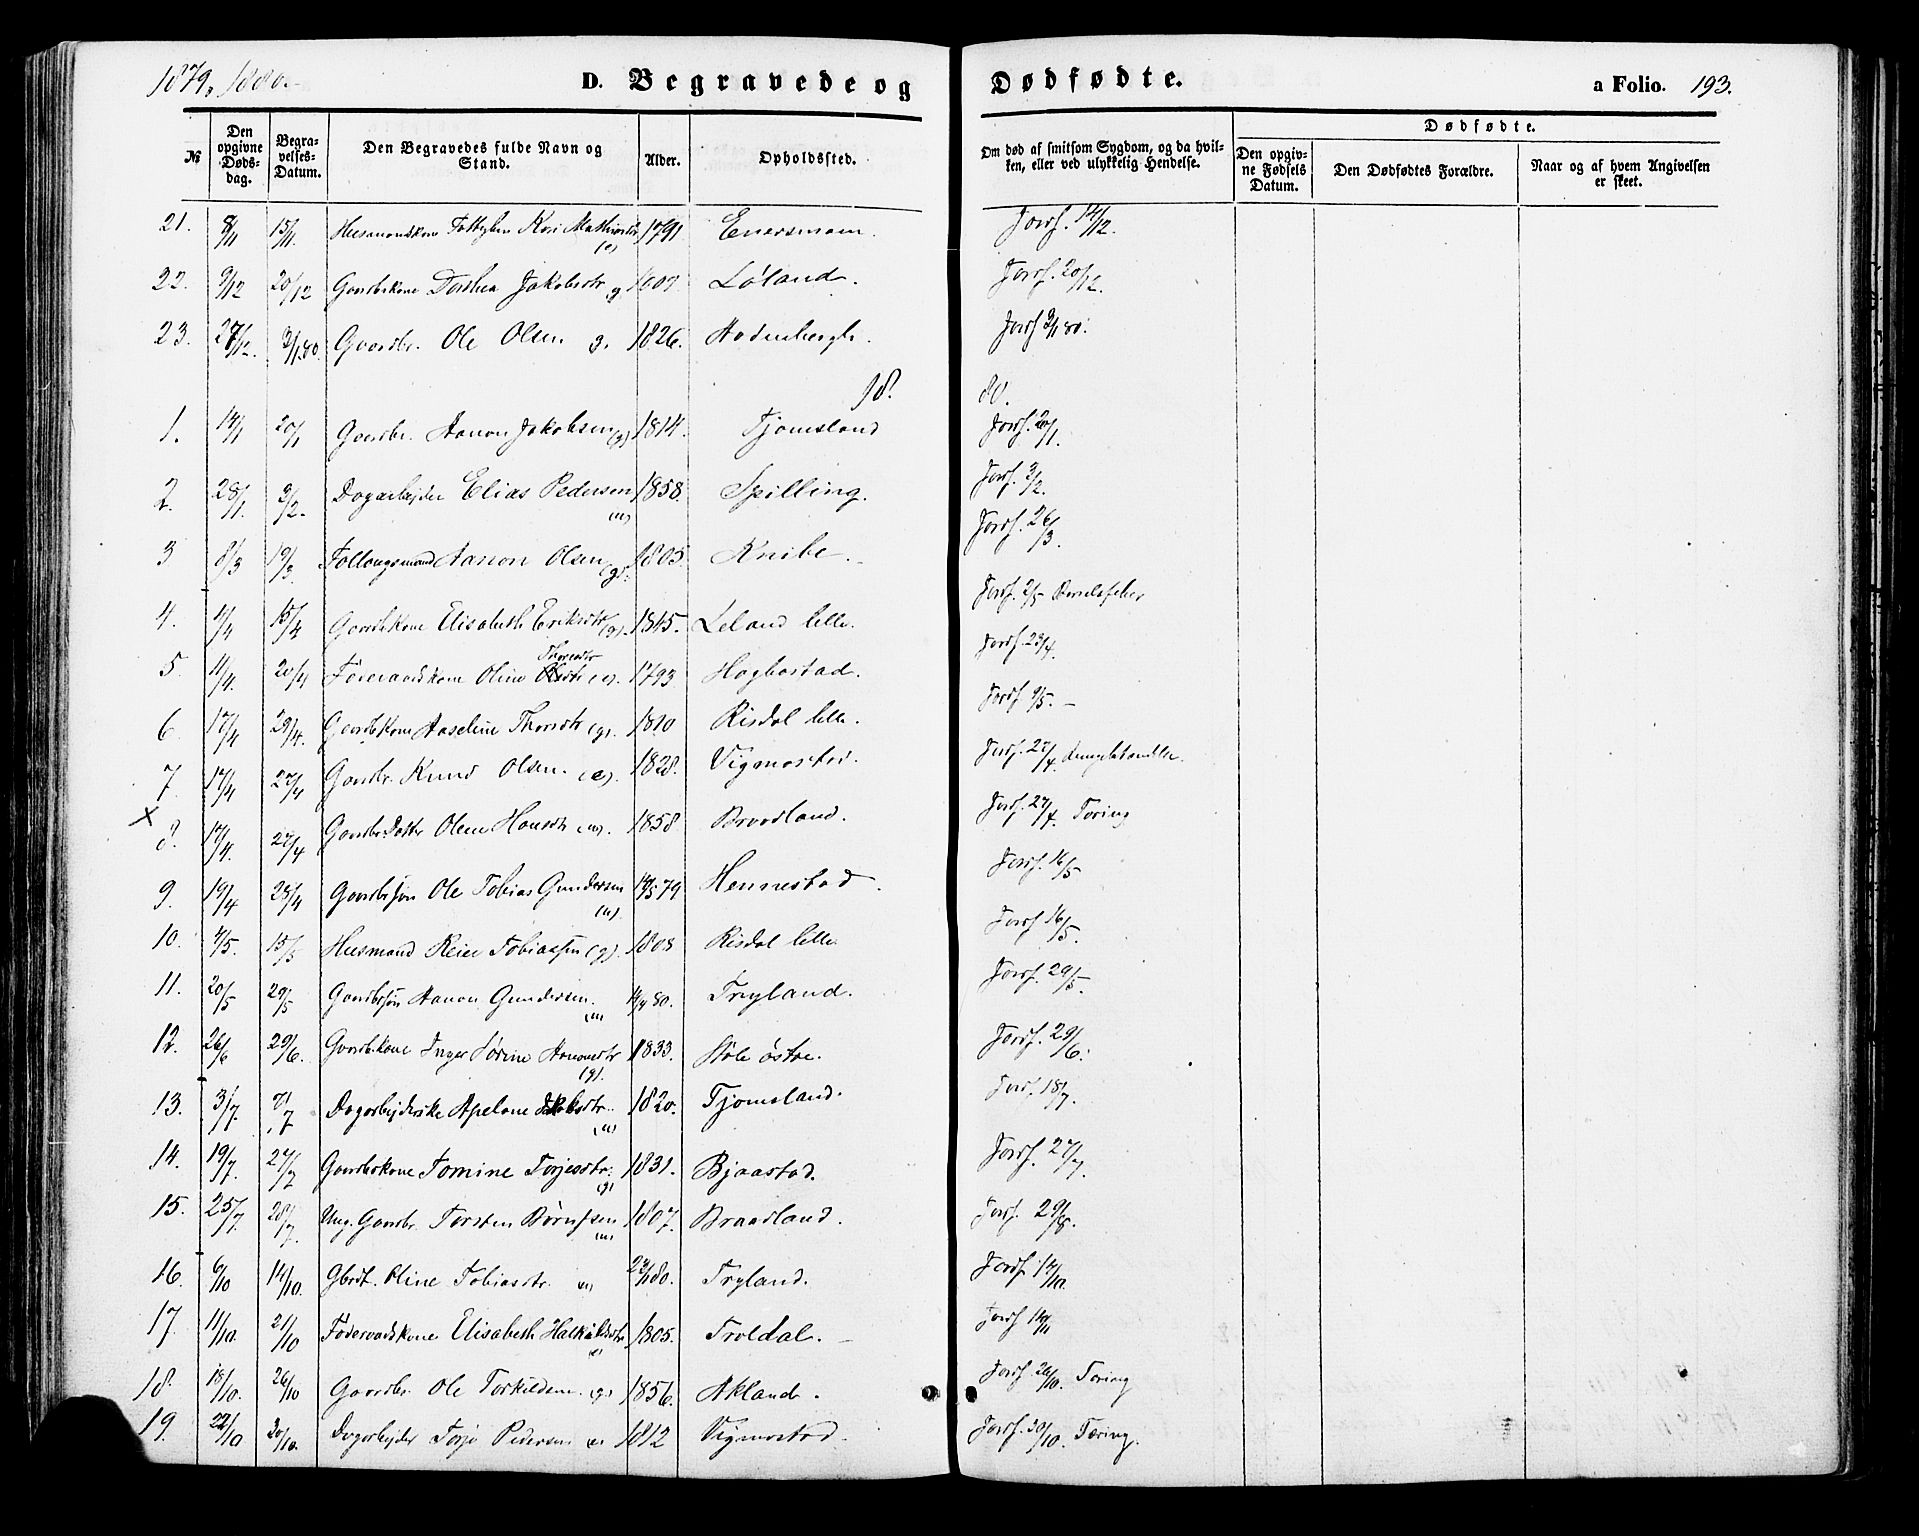 1879, 1880.
D. Begravede og Dødfødte.
a Folio. 193.
№
Den opgivne Døds-dag.
Begra-velses-Datum.
Den Begravedes fulde Navn og Stand.
Alder.
Opholdssted.
Om død af smitsom Sygdom, og da hvil-ken, eller ved ulykkelig Hendelse.
Dødfødte.
Den opgiv-ne Fødsels Datum.
Den Dødfødtes Forældre.
Naar og af hvem Angivelsen er skeet.
21. 8/11 15/11. Kari 1791 Jordf. 14/12.
22. 9/12 20/12 Gaardbkone Dorthea Jakobsdtr g Løland. Jordf. 20/12.
23. 27/12. 3/1 80. Gaardbr. Ole Olsen g. 1826. Jordf 3/1 80.
18.
80.
1. 14/1 20/1 Gaardbr. Aanon Jakobsen (g) 1814. Tjomsland Jordf. 20/1.
2. 28/1. 3/2. Dagarbejder Elias Pedersen (u) 1858. Spilling. Jordf. 3/2.
3 8/3 19/3 Aanon Olsen (g). 1805 Knibe. Jordf. 26/3
4. 4/4 15/4 Gaardbkone Elisabeth Eriksdtr (g). 1845. Leland lille. Jordf. 2/5 Barselfeber
5. 11/4. 20/4 Føderaadskone Oline Thoresdtr (e). 1793 Høgbostad. Jordf. 23/4.
6. 17/4 29/4. Gaardbkone Aaseline Thorsdtr (g). 1810 Risdal lille. Jordf 9/5. –
7. 17/4 27/4 Gaardbr. Knud Olsen. (e). 1828. Vigmostad. Jordf. 27/4.
X 8. 17/4. 27/4 Gaardbr.Datter Olene Hansdtr (u). 1858 Braadland. Jordf. 27/4. Tæring
9. 19/4 28/4 Gaardbrsøn Ole Tobias Gundersen (u). 79 Hennestad. Jordf. 16/5
10. 4/5. 15/5 Husmand Reier Tobiassen (g). 1808 Risdal lille Jordf 16/5.
11. 20/5 29/5 Gaardbrsøn Aanon Gundersen. (u) 80. Tryland. Jordf. 29/5.
12. 26/6 29/6. Gaardbkone Inger Sørine Aanonsdtr (g). 1833. Hole østre. Jordf. 29/6.
13. 3/7. 7/7 Dagarbejderske Apelone Jakobsdtr. (u) 1820. Tjomsland. Jordf. 18/7.
14. 19/7. 27/7 Gaardbrskone Tomine Torjesdtr. (g) 1831. Bjaastad. Jordf. 27/7.
15. 25/7. 28/7. Ung. Gaardbr. Torsten Børufsen (u) 1807. Braadland. Jordf. 29/8.
16. 6/10 14/10. Gbrdt. Oline Tobiasdtr. (u) 80. Tryland. Jordf. 14/10.
17. 11/10. 21/10 Føderaadskone Elisabeth (e) 1805. Troldal. Jordf 14/11
18. 18/10. 26/10 Gaardbr. Ole Torkildsen. (g) 1856. Akland. Jordf. 26/10. Tæring
19. 22/10 30/10. Dagarbejder Torje Pedersen (e) 1812 Vigmostad. Jordf. 30/10. Tæring.